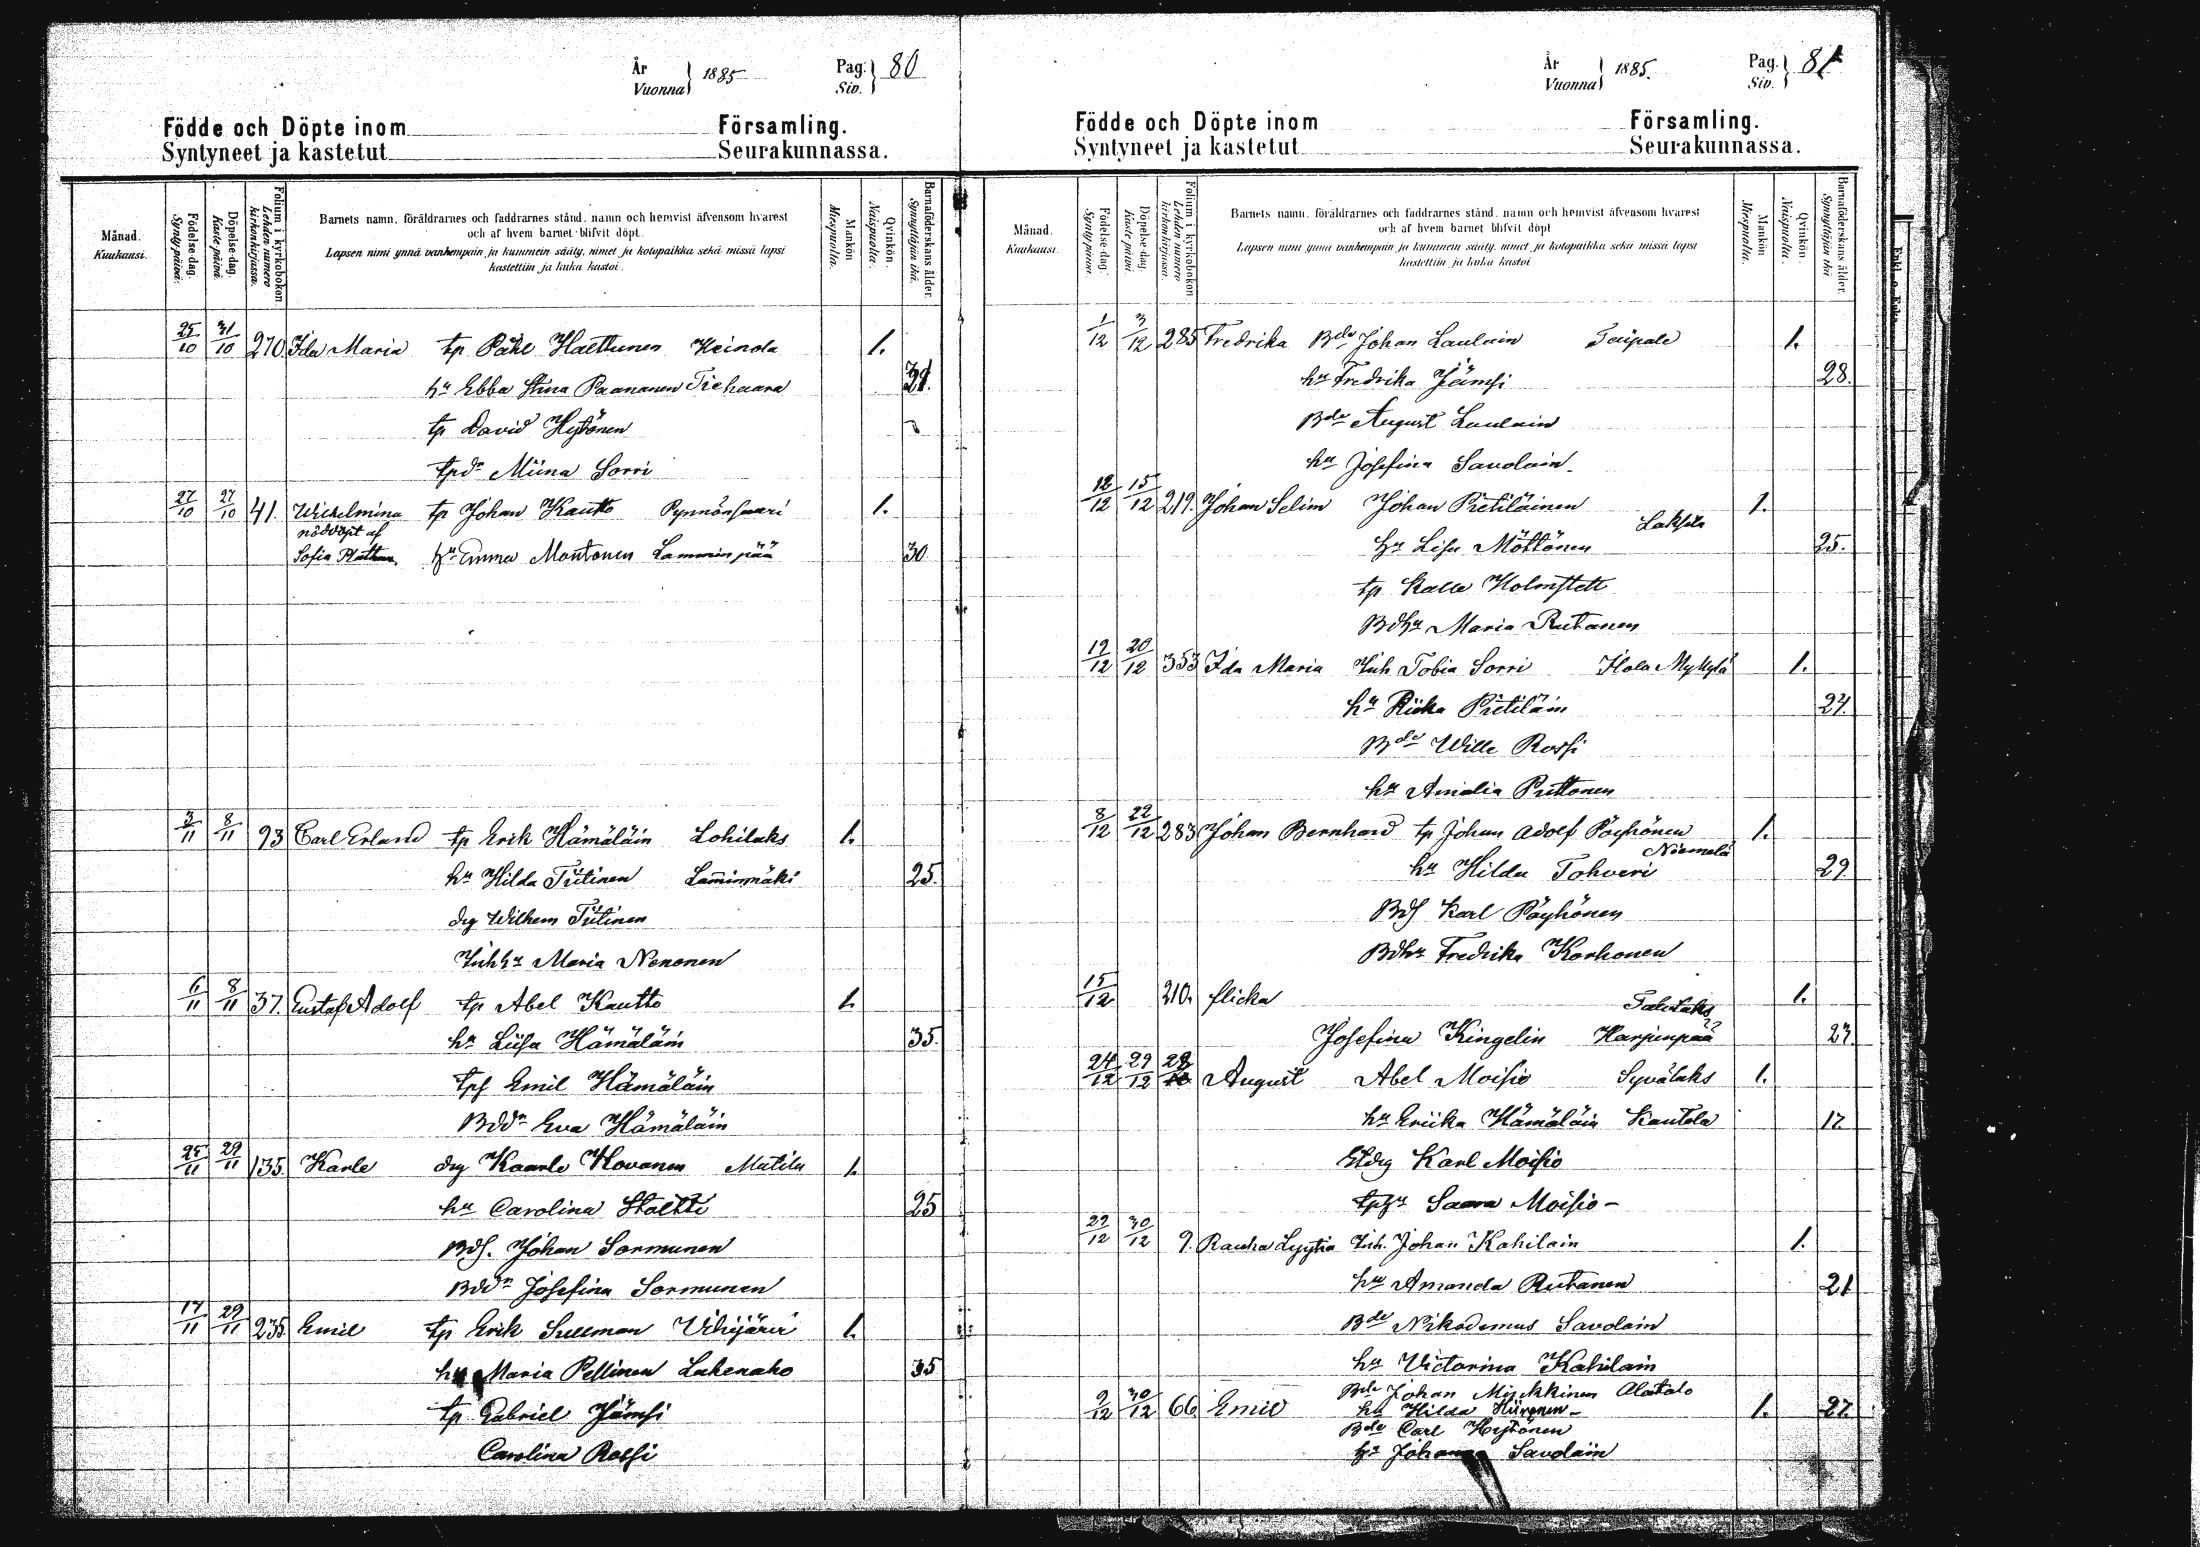 År
Vuonna
1885
Pag.
Siv.
80
Födde och Döpte inom Församling.
Syntyneet ja kastetut Seurakunnassa.
Månad.
Kuukausi.
Födelse-dag.
Syntypäivä.
Döpelse-dag.
Kaste päivä.
Folium i kyrkobokon
Lehden numero
kirkonkirjassa.
Barnets namn, föräldrarnes och faddrarnes stånd, namn och hemvist äfvensom hvarest
och af hvem barnet blifvit döpt.
Lapsen nimi ynnä vanhempain ja kummein sääty, nimet ja kotopaikka sekä missä lapsi
kastettiin ja kuka kastoi.
Mankön
Miespuolia.
Qvinkön.
Naispuolia.
Barnaföderskans ålder.
Synnyttäjän ikä.
25/10 31/10 270. Ida Maria tp Påhl Haettunen Heinola 1.
hu Ebba Stina Paananen Tiehaara
tp David Hytönen
tpdr Miina Sorri
27/10 27/10 41. Wilhelmina tp Johan Kautto Pynnönsaari 1.
nöddöpt af
Sofia hu Emma Montonen Lamminpää 30
3/11 8/11 93 Carl Erland tp Erik Hämäläin Lohilaks 1.
hu Hilda Tiitinen Lamminmäki 25.
drg Wilhem Tiitinen
Inhhu Maria Nenonen
6/11 8/11 37. Gustaf Adolf tp Abel Kautto 1.
hu Liisa Hämäläin 35.
tps Emil Hämäläin
Bddr Eva Hämäläin
25/11 29/11 135. Karle drg Kaarle Hovanen Mutila 1.
hu Carolina Stoltti 25
Bds. Johan Sormunen
Bddr Josefina Sormunen
17/11 29/11 235. Emil tp Erik Sullman Vihijärvi 1.
hu Maria Pellinen Lukenaho 35
tp Gabriel Jämsi
Carolina Rossi
År
Vuonna
1885.
Pag.
Siv.
81
Födde och Döpte inom Församling.
Syntyneet ja kastetut Seurakunnassa.
Månad.
Kuukausi.
Födelse-dag.
Syntypäivä.
Döpelse-dag.
Kaste päivä.
Folium i kyrkobokon
Lehden numero
kirkonkirjassa.
Barnets namn, föräldrarnes och faddrarnes stånd, namn och hemvist äfvensom hvarest
och af hvem barnet blifvit döpt
Lapsen nimi ynnä vanhempain ja kummein sääty, nimet ja kotopaikka sekä missä lapsi
kastettiin ja kuka kastoi.
Mankön
Miespuolia.
Qvinkön.
Naispuolia.
Barnaföderskans ålder.
Synnyttäjän ikä
1/12 3/12 285 Fredrika Bde Johan Laulain Taipale 1.
hu Fredrika Jämsi 28.
Bde August Laulain
hu Josefina Savolain.
12/12 15/12 219. Johan Selim Johan Pietiläinen 1.
Laksela
hu Lisa Möttönen 25.
tp Kalle Holmstett
Bdhu Maria Rutanen
19/12 20/12 353 Ida Maria Inh Tobia Sorri Ilola Mykylä 1.
hu Riika Pietiläin 24.
Bde Wille Rossi
hu Amalia Puttonen
8/12 22/12 283 Johan Bernhard tp Johan Adolf Pöyhönen 1.
Niemelä
hu Hilda Tohveri 29
Bds Karl Pöyhönen
Bdhu Fredrika Korhonen
15/12 210. flicka 1.
Josefina Kingelin Harjunpää 23.
24/12 29/12 August Abel Moisio Syvälaks 1.
hu Eriika Hämäläin Kautola 17
Karl Moisio
tphu Saara Moisio -
22/12 30/12 9. Rauha Lyytia Inh. Johan Kahilain 1.
hu Amanda Rutanen 21
Bde Nikodemus Savolain
hu Victorina Kahilain
Bde Johan Minkkinen Alatalo
9/12 30/12 66 Emil hu Hilda Hiironen - 1. 27.
Bde Carl Hytönen
hu Johanna Savolain